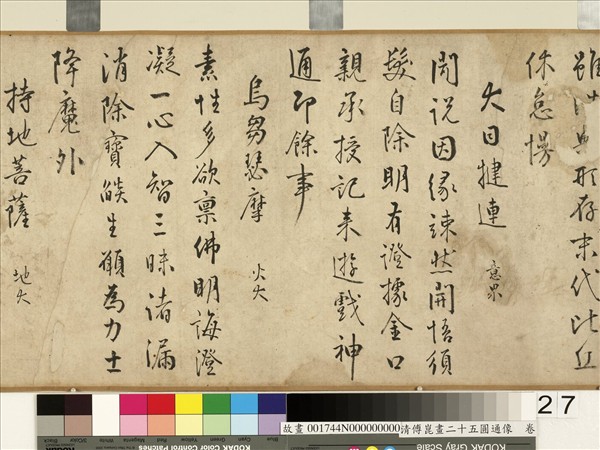 雖此典形存末代比丘
休怠慢
大目揵連 意界
聞説因縁竦然開悟須
髮自除明有證據金口
親承授記来遊戯神
通即餘事
烏芻瑟摩 火大
素性多欲稟佛明誨澄
凝一心入智三昧諸漏
消除寶𦦨生願為力士
降魔外
持地菩薩 地大
27
故畫 001744N000000000清傅崑畫二十五圓通像 卷
KODAK Color Control Patches
KODAK Gray Scale